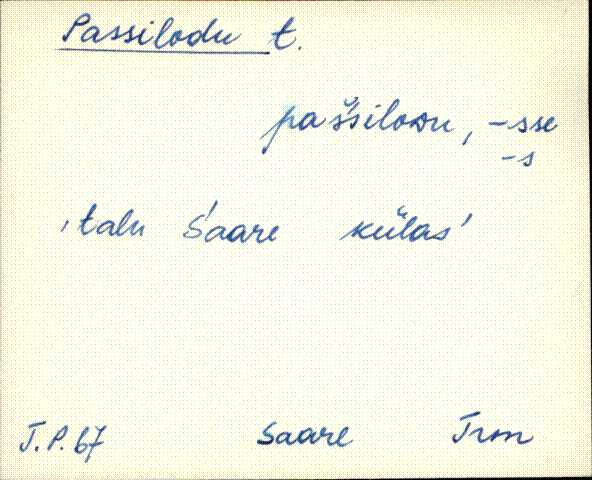 Passilodu t.
paššiloDu, -sse
-s
'talu Saare külas'
J.P. 67 Saare Trm